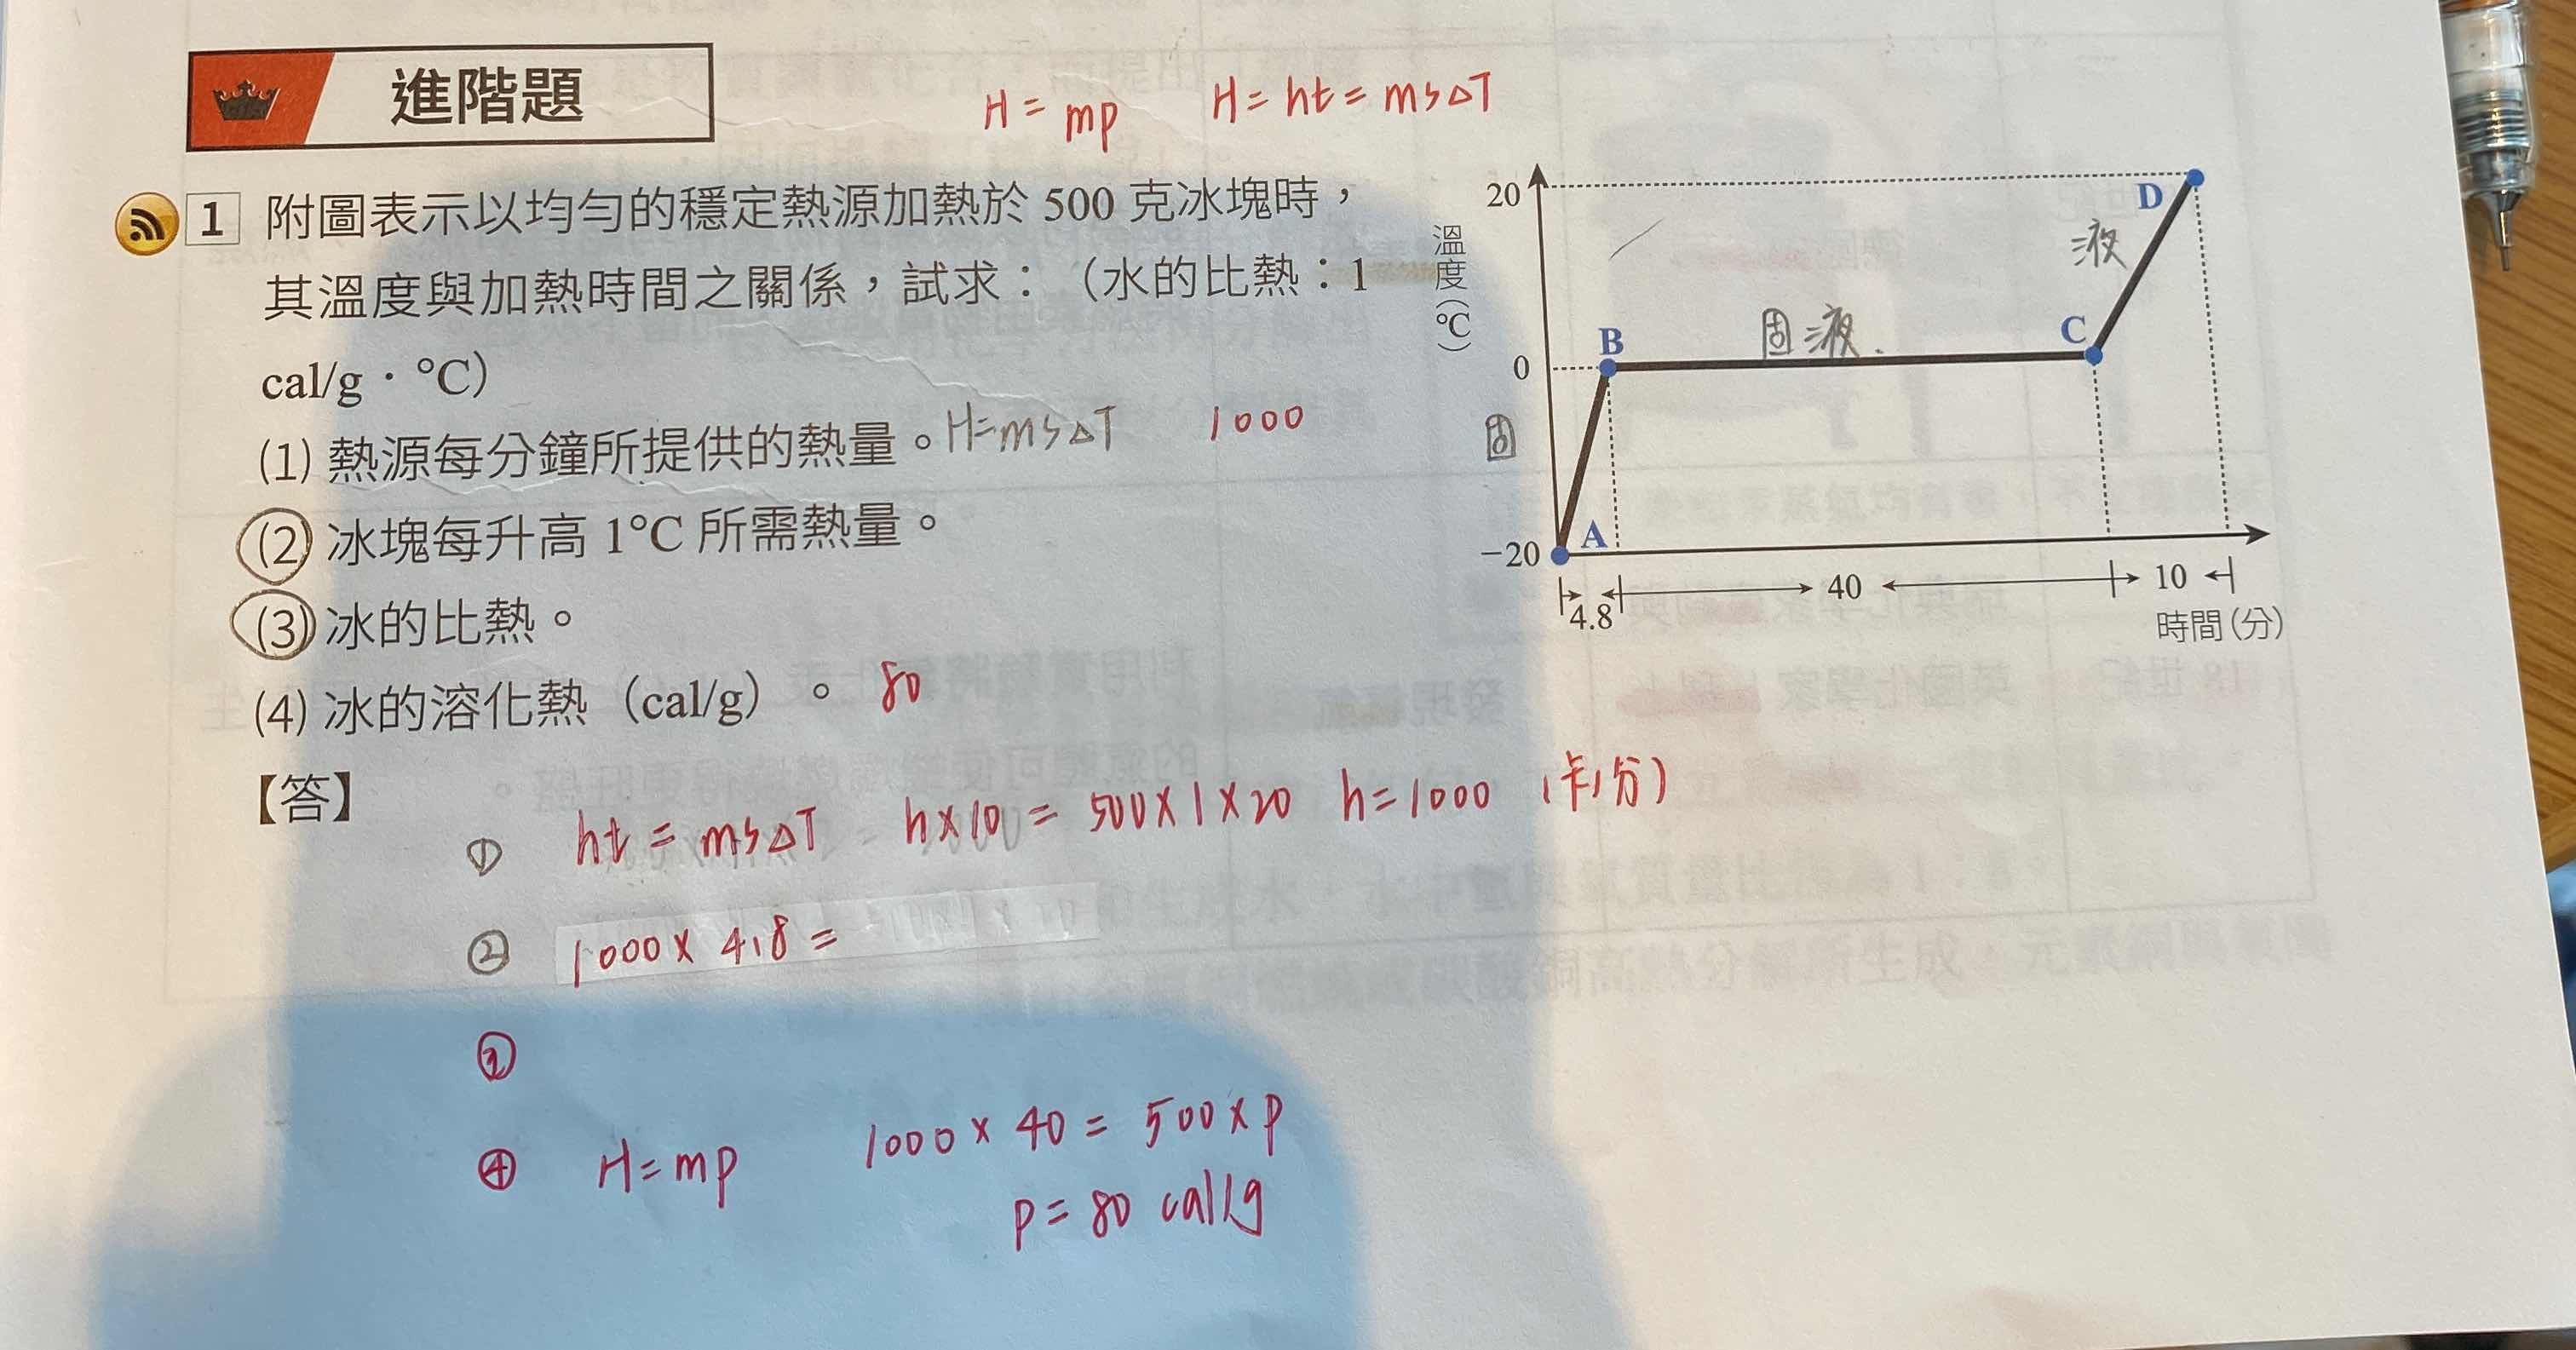 進階題
H = mp H = ht = msΔT
1 附圖表示以均勻的穩定熱源加熱於 500 克冰塊時，
其溫度與加熱時間之關係，試求：（水的比熱：1
cal/g・℃）
(1) 熱源每分鐘所提供的熱量。H=msΔT 1000
(2) 冰塊每升高 1℃ 所需熱量。
(3) 冰的比熱。
(4) 冰的溶化熱（cal/g）。 80
【答】
① ht = msΔT h×10 = 500×1×20 h=1000 (卡/分)
② 1000×4.8=
③
④ H=mp 1000×40=500×p
p=80 cal/g
溫度(℃)
20
0
−20
固
A
B
固液
C
液
D
4.8
40
10
時間(分)